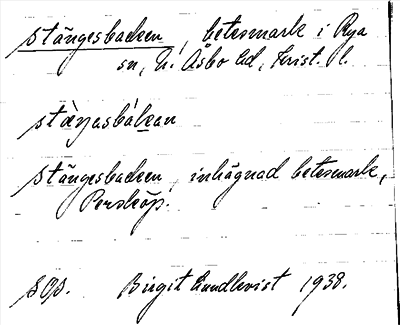 stängesbacken, betesmark i Rya
sn, N. Åsbo hd, Krist. l.
stäŋasbàkan
stängesbacken, inhägnad betesmark,
Perstorp.
SOS. Birgit Lundkvist 1938.